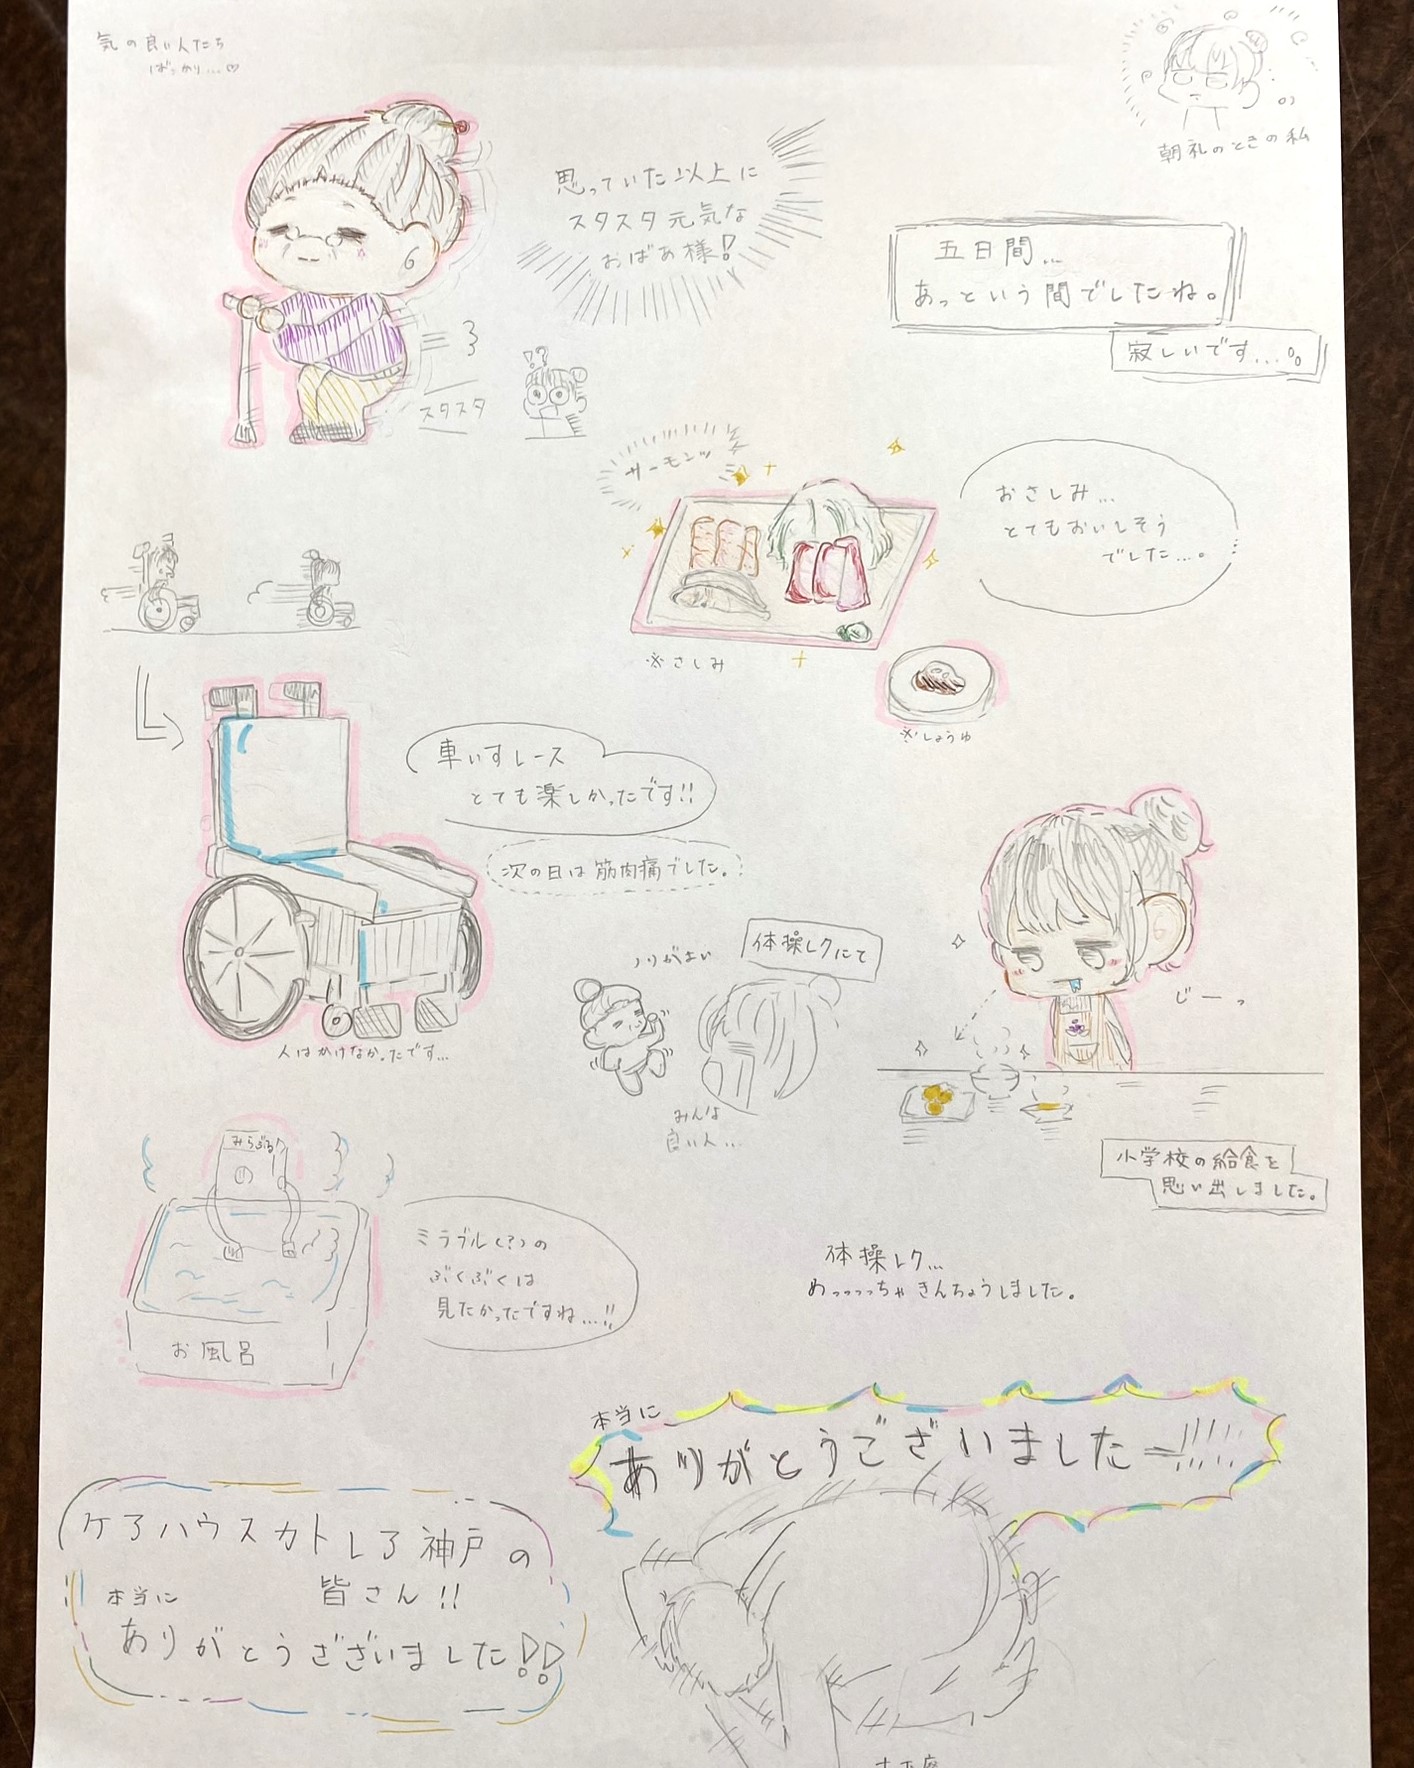 気の良い人たち
ばっかり...♡
朝礼のときの私
思っていた以上に
スタスタ元気な
おばあ様!
五日間...
あっという間でしたね。
寂しいです...。
スタスタ
!?
サーモンッ
おさしみ...
とてもおいしそう
でした...。
※さしみ
※しょうゆ
車いすレース
とても楽しかったです!!
次の日は筋肉痛でした。
人はかけなかったです...
体操レクにて
ノリがよい
みんな
良い人...
じーっ
小学校の給食を
思い出しました。
みらぶる
の
お風呂
ミラブル(?)の
ぶくぶくは
見たかったですね...!!
体操レク...
めっっっっちゃきんちょうしました。
本当に
ありがとうでございましたー!!!!!
ケアハウスカトレア神戸の
皆さん!!
本当に
ありがとうございました!!